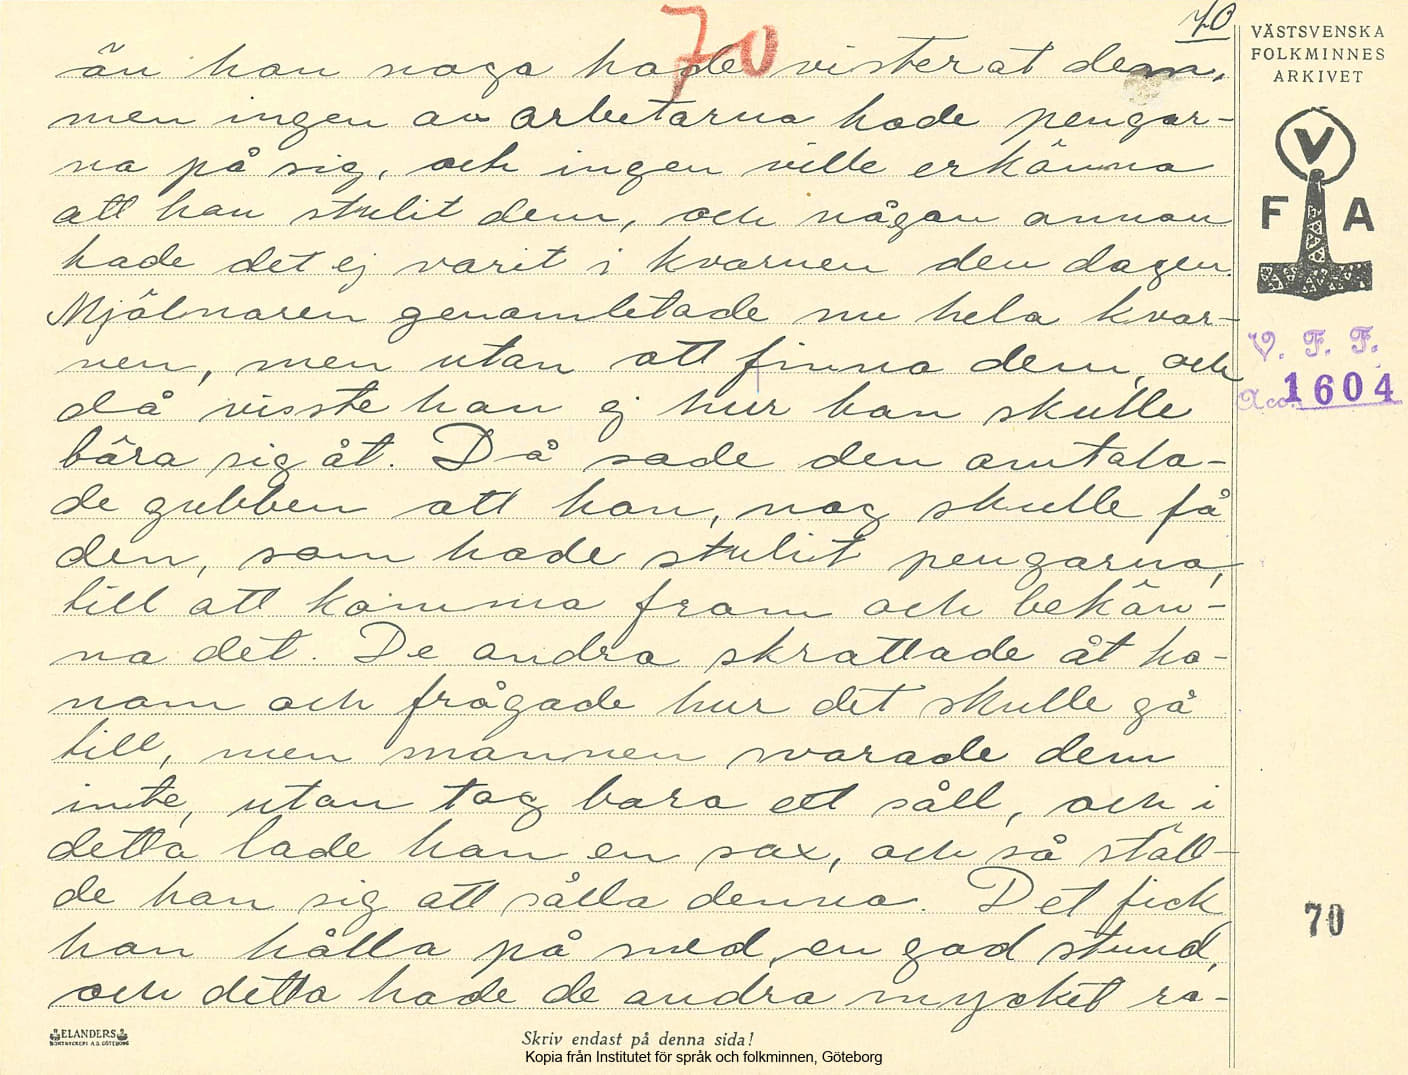 70
70
VÄSTSVENSKA
FOLKMINNES
ARKIVET
V
F A
V. F. F.
Acc. 1604
än han noga hade visterat dem,
men ingen av arbetarna hade pengar-
na på sig, och ingen ville erkänna
att han stulit dem, och någon annan
hade det ej varit i kvarnen den dagen.
Mjölnaren genomletade nu hela kvar-
nen, men utan att finna dem, och
då visste han ej hur han skulle
bära sig åt. Då sade den omtala-
de gubben att han, nog skulle få
den, som hade stulit pengarna,
till att komma fram och bekän-
na det. De andra skrattade åt ho-
nom och frågade hur det skulle gå
till, men mannen svarade dem
inte, utan tog bara ett såll, och i
detta lade han en sax, och så ställ-
de han sig att sålla denna. Det fick
han hålla på med en god stund,
och detta hade de andra mycket ro-
70
ELANDERS
BOKTRYCKERI A.B. GÖTEBORG
Skriv endast på denna sida!
Kopia från Institutet för språk och folkminnen, Göteborg